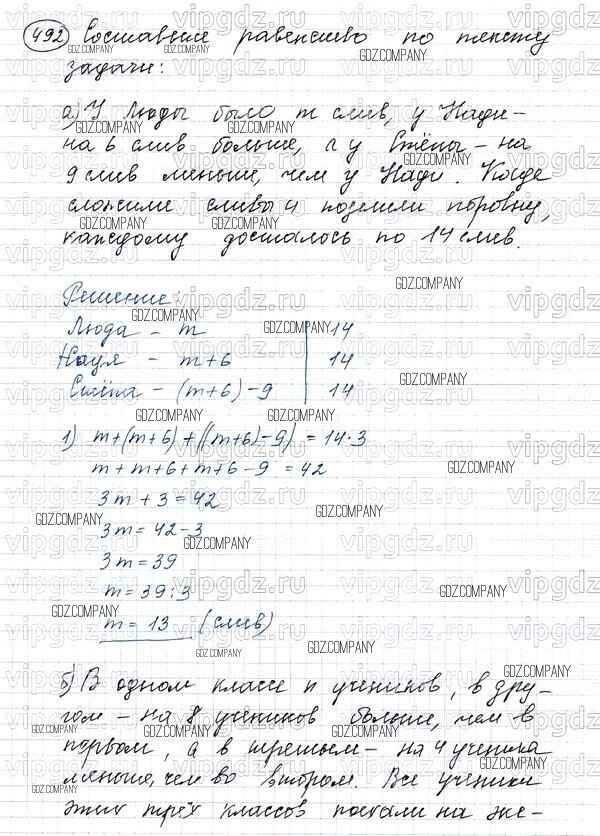 492 Составьте равенство по тексту
задачи:
а) У Люды было m слив, у Нади –
на 6 слив больше, а у Стёпы – на
9 слив меньше, чем у Нади. Когда
сложили сливы и поделили поровну,
каждому досталось по 14 слив.
Решение:
Люда – m | 14
Надя – m+6 | 14
Стёпа – (m+6)-9 | 14
1) m+(m+6)+((m+6)-9) = 14·3
m+m+6+m+6-9 = 42
3m+3=42
3m=42-3
3m=39
m=39:3
m=13 (слив)
б) В одном классе n учеников, в дру-
гом – на 8 учеников больше, чем в
первом, а в третьем – на 4 ученика
меньше, чем во втором. Все ученики
этих трёх классов поехали на экс-